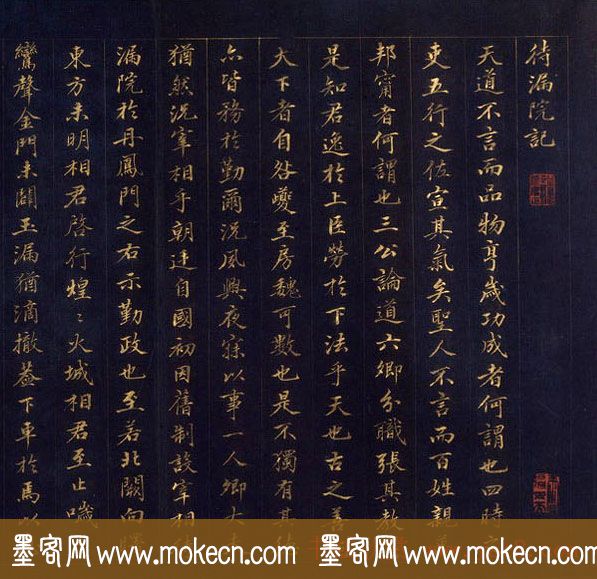 待漏院記
天道不言而品物亨歲功成者何謂也四時之
吏五行之佐宣其氣矣聖人不言而百姓親萬
邦甯者何謂也三公論道六卿分職張其教
是知君逸於上臣勞於下法乎天也古之善
天下者自咎夔至房魏可數也是不獨有其德
亦皆務於勤爾況夙興夜寐以事一人卿大夫
猶然況宰相乎朝廷自國初因舊制設宰相待
漏院於丹鳳門之右示勤政也至若北闕向曙
東方未明相君啓行煌〻火城相君至止噦
鸞聲金門未闢玉漏猶滴撤蓋下車於焉以
墨客网 www.mokecn.com 墨客网 www.mokecn.com